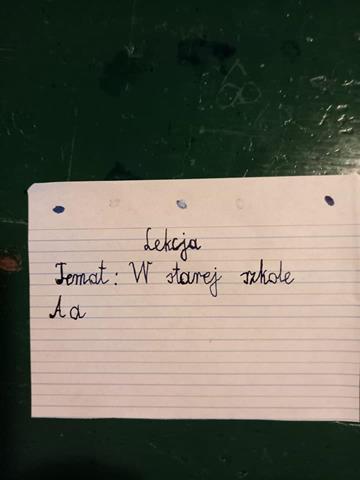 Lekcja
Temat: W starej szkole
A a